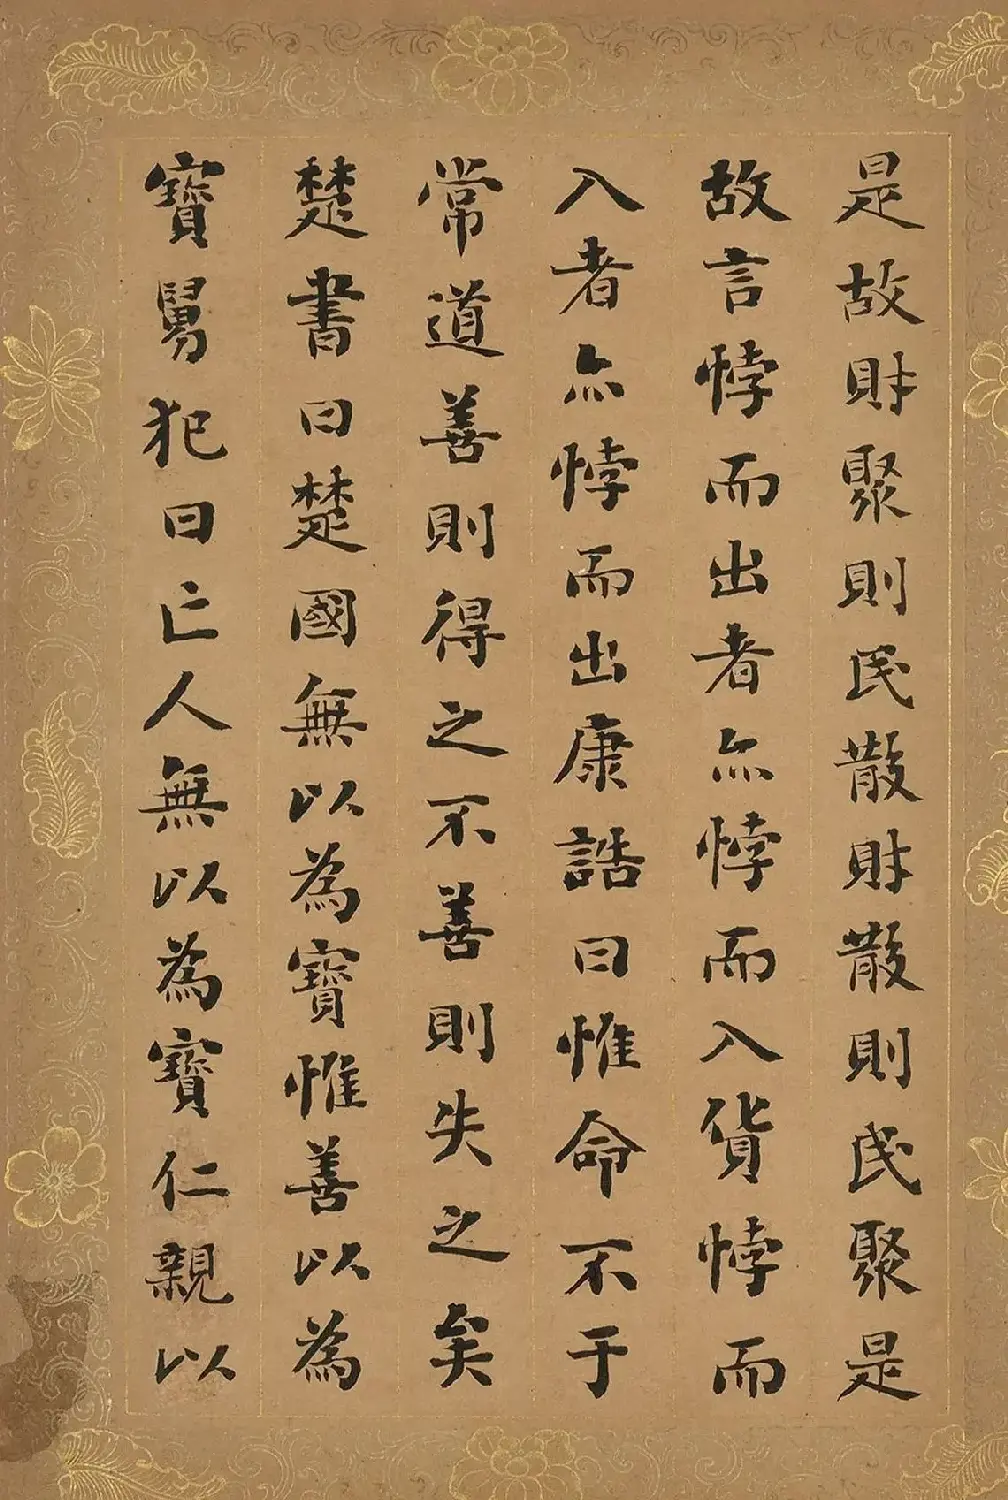 是故財聚則民散財散則民聚是
故言悖而出者亦悖而入貨悖而
入者亦悖而出康誥曰惟命不于
常道善則得之不善則失之矣
楚書曰楚國無以為寶惟善以為
寶舅犯曰亡人無以為寶仁親以